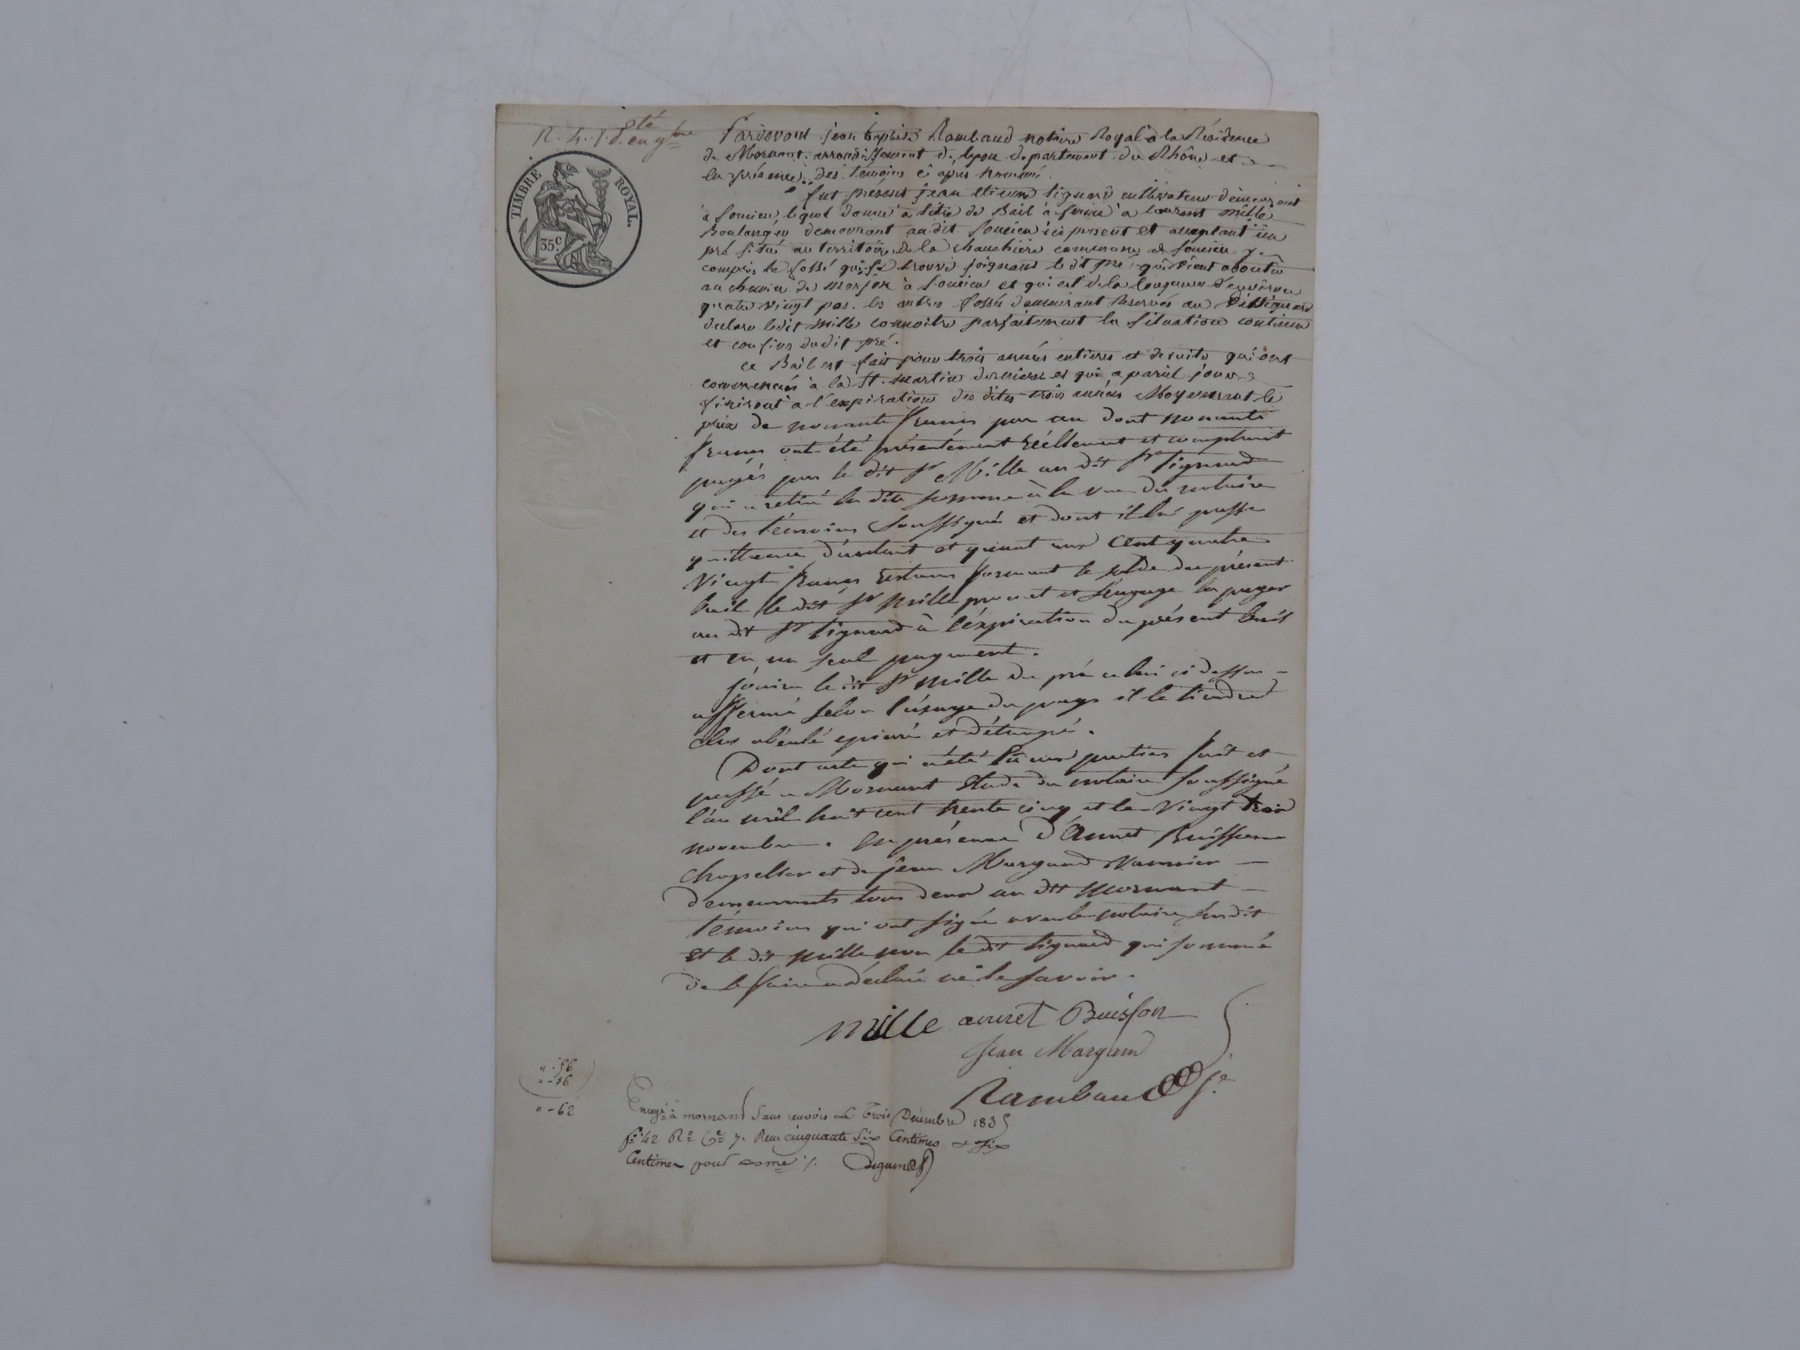 TIMBRE ROYAL
35 c
Pardevant jean baptiste Rambaud notaire Royal à la Résidence
de Mornant arrondissement de lyon departement du Rhône et
la présence des témoins ci après nommés
fut présent jean etienne Signard cultivateur demeurant
à soucieu lequel donne à titre de Bail à ferme à laurent Mille
Boulanger demeurant au dit soucieu ici present et acceptant un
pré situé au territoire de la chauchière commune de soucieu y
compris le fossé qui se trouve joignant le dit pré
au chemin de à soucieu et qui est de la longueur d'environ
quatre vingt pas les autres fossés demeurant reservés au dit Signard
declare ledit Mille connoitre parfaitement la situation contenu
et confins dudit pré.
ce Bail est fait pour trois années entieres et de suite qui ont
commencés à la St. martin derniere et qui a pareil jour
finiront a l'expiration des dites trois années Moyennant le
prix de nonante francs par an dont nonante
francs ont été présentement réellement et comptant
payés par le dit Sr Mille au dit Sr Signard
qui a retiré la dite somme à la vue du notaire
et des témoins soussignés et dont il lui passe
quittance d'autant et quant aux cent quatre
vingt francs restans formant le solde du présent
bail le dit Sr Mille promet et s'engage les payer
au dit Sr Signard à l'éxpiration du présent bail
et en un seul payement.
Jouira le dit Sr Mille du pré a lui ci dessus
affermé selon l'usage du pays il le tiendra
clos epierré et détaupé.
Dont acte qui a été lu aux parties fait et
passé a Mornant étude du notaire soussigné
l'an mil huit cent trente cinq et le vingt trois
novembre. En présence d'Annet Buisson
chapellier et de jean Margand
demeurants tous deux au dit Mornant
témoins qui ont signé avec le notaire susdit
et le dit Mille non le dit Signard qui sommé
de le faire a déclaré ne le savoir.
Mille annet Buisson
Jean Margand
Rambaud
" - 56
" - 06
" - 62
Enregé à mornant sans renvois le trois Décembre 1835
fo 42 Ro Ce 7. Reçu cinquante six Centimes et six
Centimes pour